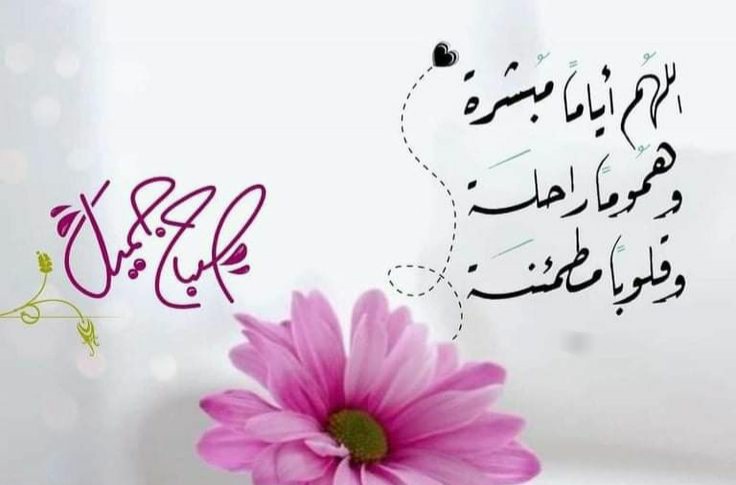 اللهُم أياماً مُبشرة
وهمُوماً راحلة
وقلوباً مطمئنة
صباح جميل